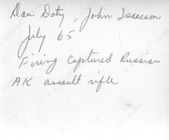 Dan Doty, John Isaacson
July 65
Firing Captured Russian
AK assault rifle